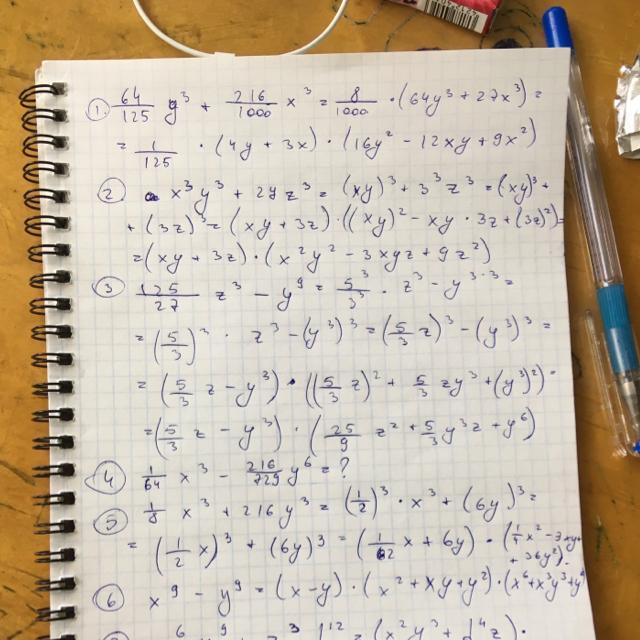 ① 64/125 y³ + 216/1000 x³ = 8/1000 · (64y³ + 27x³) =
= 1/125 · (4y + 3x) · (16y² - 12xy + 9x²)
② x³y³ + 27z³ = (xy)³ + 3³z³ = (xy)³ +
+ (3z)³ = (xy + 3z) · ((xy)² - xy · 3z + (3z)²) =
= (xy + 3z) · (x²y² - 3xyz + 9z²)
③ 125/27 z³ - y⁹ = 5³/3³ · z³ - y³·³ =
= (5/3)³ · z³ - (y³)³ = (5/3 z)³ - (y³)³ =
= (5/3 z - y³) · ((5/3 z)² + 5/3 zy³ + (y³)²) =
= (5/3 z - y³) · (25/9 z² + 5/3 y³z + y⁶)
④ 1/64 x³ - 216/729 y⁶ = ?
⑤ 1/8 x³ + 216y³ = (1/2)³ · x³ + (6y)³ =
= (1/2 x)³ + (6y)³ = (1/2 x + 6y) · (1/4 x² - 3xy
+ 36y²).
⑥ x⁹ - y⁹ = (x - y) · (x² + xy + y²) · (x⁶ + x³y³ + y⁶